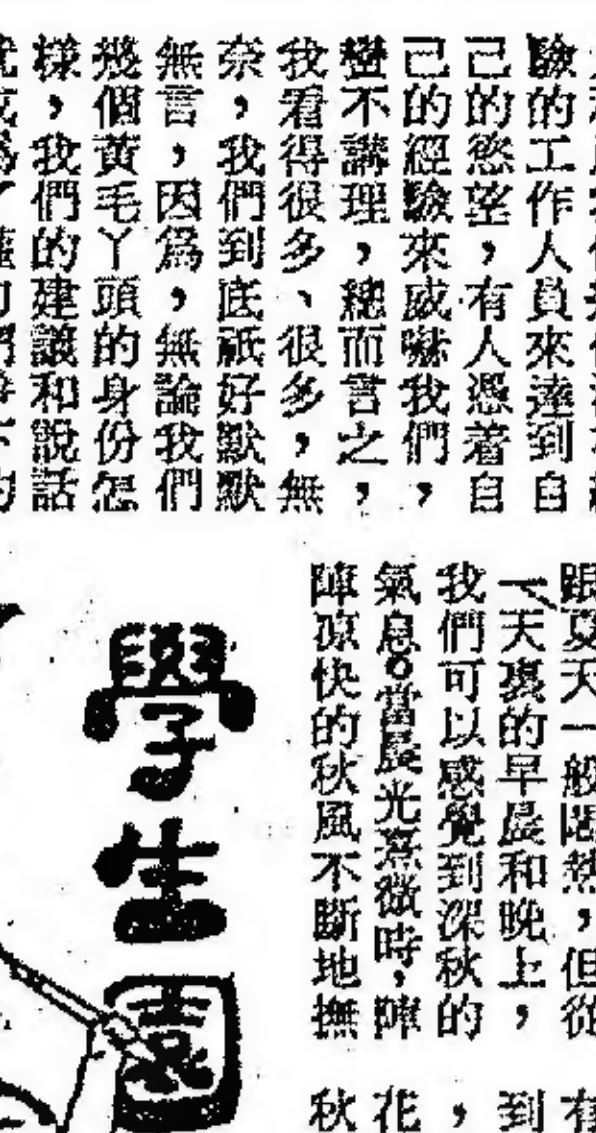 驗的工作人員來達到自
己的慾望，有人憑着自
己的經驗來威嚇我們，
蠻不講理，總而言之，
我看得很多、很多，無
奈，我們到底祇好默默
無言，因爲，無論我們
幾個黃毛丫頭的身份怎
樣，我們的建議和說話
跟夏天一般悶熱，但從
一天裏的早晨和晚上，
我們可以感覺到深秋的
氣息。當晨光熹微時，陣
陣凉快的秋風不斷地撫
有
到
，
花
秋
學生園